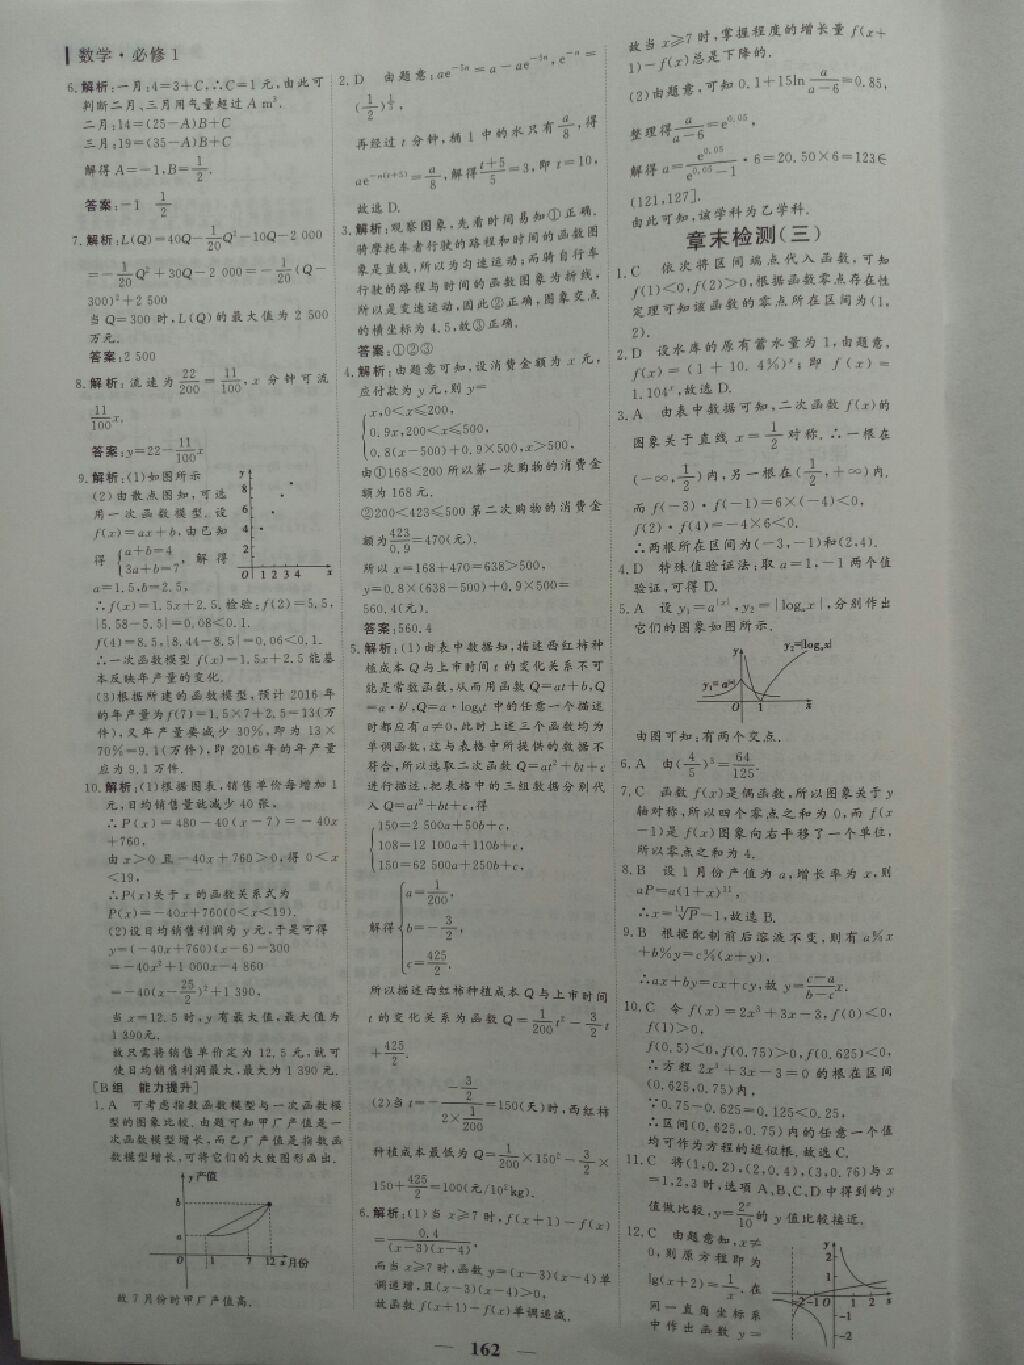 数学·必修1
6.解析:一月:4=3+C,∴C=1元,由此可
判断二月、三月用气量超过A m³.
二月:14=(25-A)B+C
三月:19=(35-A)B+C
解得A=-1,B=1/2.
答案:-1 1/2
7.解析:L(Q)=40Q-1/20Q²-10Q-2 000
=-1/20Q²+30Q-2 000=-1/20(Q-
300)²+2 500
当Q=300时,L(Q)的最大值为2 500
万元.
答案:2 500
8.解析:流速为22/200=11/100,x分钟可流
11/100x.
答案:y=22-11/100x
9.解析:(1)如图所示
(2)由散点图知,可选
用一次函数模型.设
f(x)=ax+b,由已知
得{a+b=4, 3a+b=7, 解得
a=1.5,b=2.5,
∴f(x)=1.5x+2.5.检验:f(2)=5.5,
|5.58-5.5|=0.08<0.1.
f(4)=8.5,|8.44-8.5|=0.06<0.1.
∴一次函数模型f(x)=1.5x+2.5能基
本反映年产量的变化.
(3)根据所建的函数模型,预计2016年
的年产量为f(7)=1.5×7+2.5=13(万
件),又年产量要减少30%,即为13×
70%=9.1(万件),即2016年的年产量
应为9.1万件.
10.解析:(1)根据图表,销售单价每增加1
元,日均销售量就减少40张,
∴P(x)=480-40(x-7)=-40x
+760,
由x>0且-40x+760>0,得0<x
<19,
∴P(x)关于x的函数关系式为
P(x)=-40x+760(0<x<19).
(2)设日均销售利润为y元,于是可得
y=(-40x+760)(x-6)-300
=-40x²+1 000x-4 860
=-40(x-25/2)²+1 390,
当x=12.5时,y有最大值,最大值为
1 390元.
故只需将销售单价定为12.5元,就可
使日均销售利润最大,最大为1 390元.
[B组 能力提升]
1.A 可考虑指数函数模型与一次函数模
型的图象比较.由题可知甲厂产值是一
次函数模型增长,而乙厂产值是指数函
数模型增长,可将它们的大致图形画出.
y产值
b
a
O 1 7 12 x月份
故7月份时甲厂产值高.
2.D 由题意:ae⁻⁵ⁿ=a-ae⁻⁵ⁿ,e⁻ⁿ=
(1/2)^(1/5),
再经过t分钟,桶1中的水只有a/8,得
ae^(-n(t+5))=a/8,解得(t+5)/5=3,即t=10,
故选D.
3.解析:观察图象,先看时间易知①正确.
骑摩托车者行驶的路程和时间的函数图
象是直线,所以为匀速运动;而骑自行车
行驶的路程与时间的函数图象为折线,
所以是变速运动,因此②正确,图象交点
的横坐标为4.5,故③正确.
答案:①②③
4.解析:由题意可知,设消费金额为x元,
应付款为y元,则y=
{x,0<x≤200,
0.9x,200<x≤500,
0.8(x-500)+0.9×500,x>500,
由①168<200所以第一次购物的消费金
额为168元.
②200<423≤500第二次购物的消费金
额为423/0.9=470(元).
所以x=168+470=638>500,
y=0.8×(638-500)+0.9×500=
560.4(元).
答案:560.4
5.解析:(1)由表中数据知,描述西红柿种
植成本Q与上市时间t的变化关系不可
能是常数函数,从而用函数Q=at+b,Q
=a·bᵗ,Q=a·log_b t中的任意一个描述
时都应有a≠0,此时上述三个函数均为
单调函数,这与表格中所提供的数据不
符合,所以选取二次函数Q=at²+bt+c
进行描述,把表格中的三组数据分别代
入Q=at²+bt+c,得
{150=2 500a+50b+c,
108=12 100a+110b+c,
150=62 500a+250b+c,
解得{a=1/200,
b=-3/2,
c=425/2.
所以描述西红柿种植成本Q与上市时间
t的变化关系为函数Q=1/200t²-3/2t
+425/2.
(2)当t=-(-3/2)/(2×1/200)=150(天)时,西红柿
种植成本最低为Q=1/200×150²-3/2×
150+425/2=100(元/10²kg).
6.解析:(1)当x≥7时,f(x+1)-f(x)
=0.4/((x-3)(x-4)),
而当x≥7时,函数y=(x-3)(x-4)单
调递增,且(x-3)(x-4)>0,
故函数f(x+1)-f(x)单调递减,
故当x≥7时,掌握程度的增长量f(x+
1)-f(x)总是下降的.
(2)由题意,可知0.1+15ln a/(a-6)=0.85,
整理得a/(a-6)=e^0.05,
解得a=e^0.05/(e^0.05-1)·6=20.50×6=123∈
(121,127],
由此可知,该学科为乙学科.
章末检测(三)
1.C 依次将区间端点代入函数,可知
f(1)<0,f(2)>0,根据函数零点存在性
定理可知该函数的零点所在区间为(1,
2).
2.D 设水库的原有蓄水量为1,由题意,
f(x)=(1+10.4%)ˣ;即f(x)=
1.104ˣ,故选D.
3.A 由表中数据可知,二次函数f(x)的
图象关于直线x=1/2对称.∴一根在
(-∞,1/2)内,另一根在(1/2,+∞)内.
而f(-3)·f(-1)=6×(-4)<0,
f(2)·f(4)=-4×6<0.
∴两根所在区间为(-3,-1)和(2,4).
4.D 特殊值验证法:取a=1,-1两个值
验证,可得D.
5.A 设y₁=a^|x|,y₂=|logₐx|,分别作出
它们的图象如图所示.
y y₂=|logₐx|
y₁=a^|x|
O 1 x
由图可知:有两个交点.
6.A 由(4/5)³=64/125.
7.C 函数f(x)是偶函数,所以图象关于y
轴对称,所以四个零点之和为0,而f(x
-1)是f(x)图象向右平移了一个单位,
所以零点之和为4.
8.B 设1月份产值为a,增长率为x,则
aP=a(1+x)¹¹,
∴x=¹¹√P-1,故选B.
9.B 根据配制前后溶液不变,则有a%x
+b%y=c%(x+y),
∴ax+by=cx+cy,故y=(c-a)/(b-c)x.
10.C 令f(x)=2x³+3x-3,f(0)<0,
f(1)>0,
f(0.5)<0,f(0.75)>0,f(0.625)<0,
∴方程2x³+3x-3=0的根在区间
(0.625,0.75)内,
∵0.75-0.625=0.125<0.25,
∴区间(0.625,0.75)内的任意一个值
均可作为方程的近似根.故选C.
11.C 将(1,0.2),(2,0.4),(3,0.76)与x
=1,2,3时,选项A、B、C、D中得到的y
值做比较,y=2ˣ/10的y值比较接近.
12.C 由题意知,x≠
0,则原方程即为
lg(x+2)=1/x,在
同一直角坐标系
中作出函数y=
162